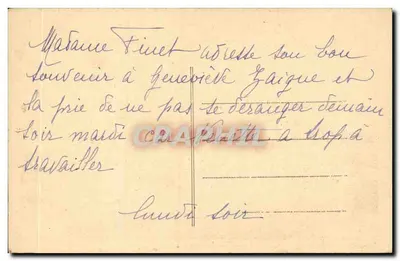 Madame Finet adresse son bon
souvenir à Geneviève Zaigue et
la prie de ne pas se déranger demain
soir mardi car a trop à
travailler
lundi soir